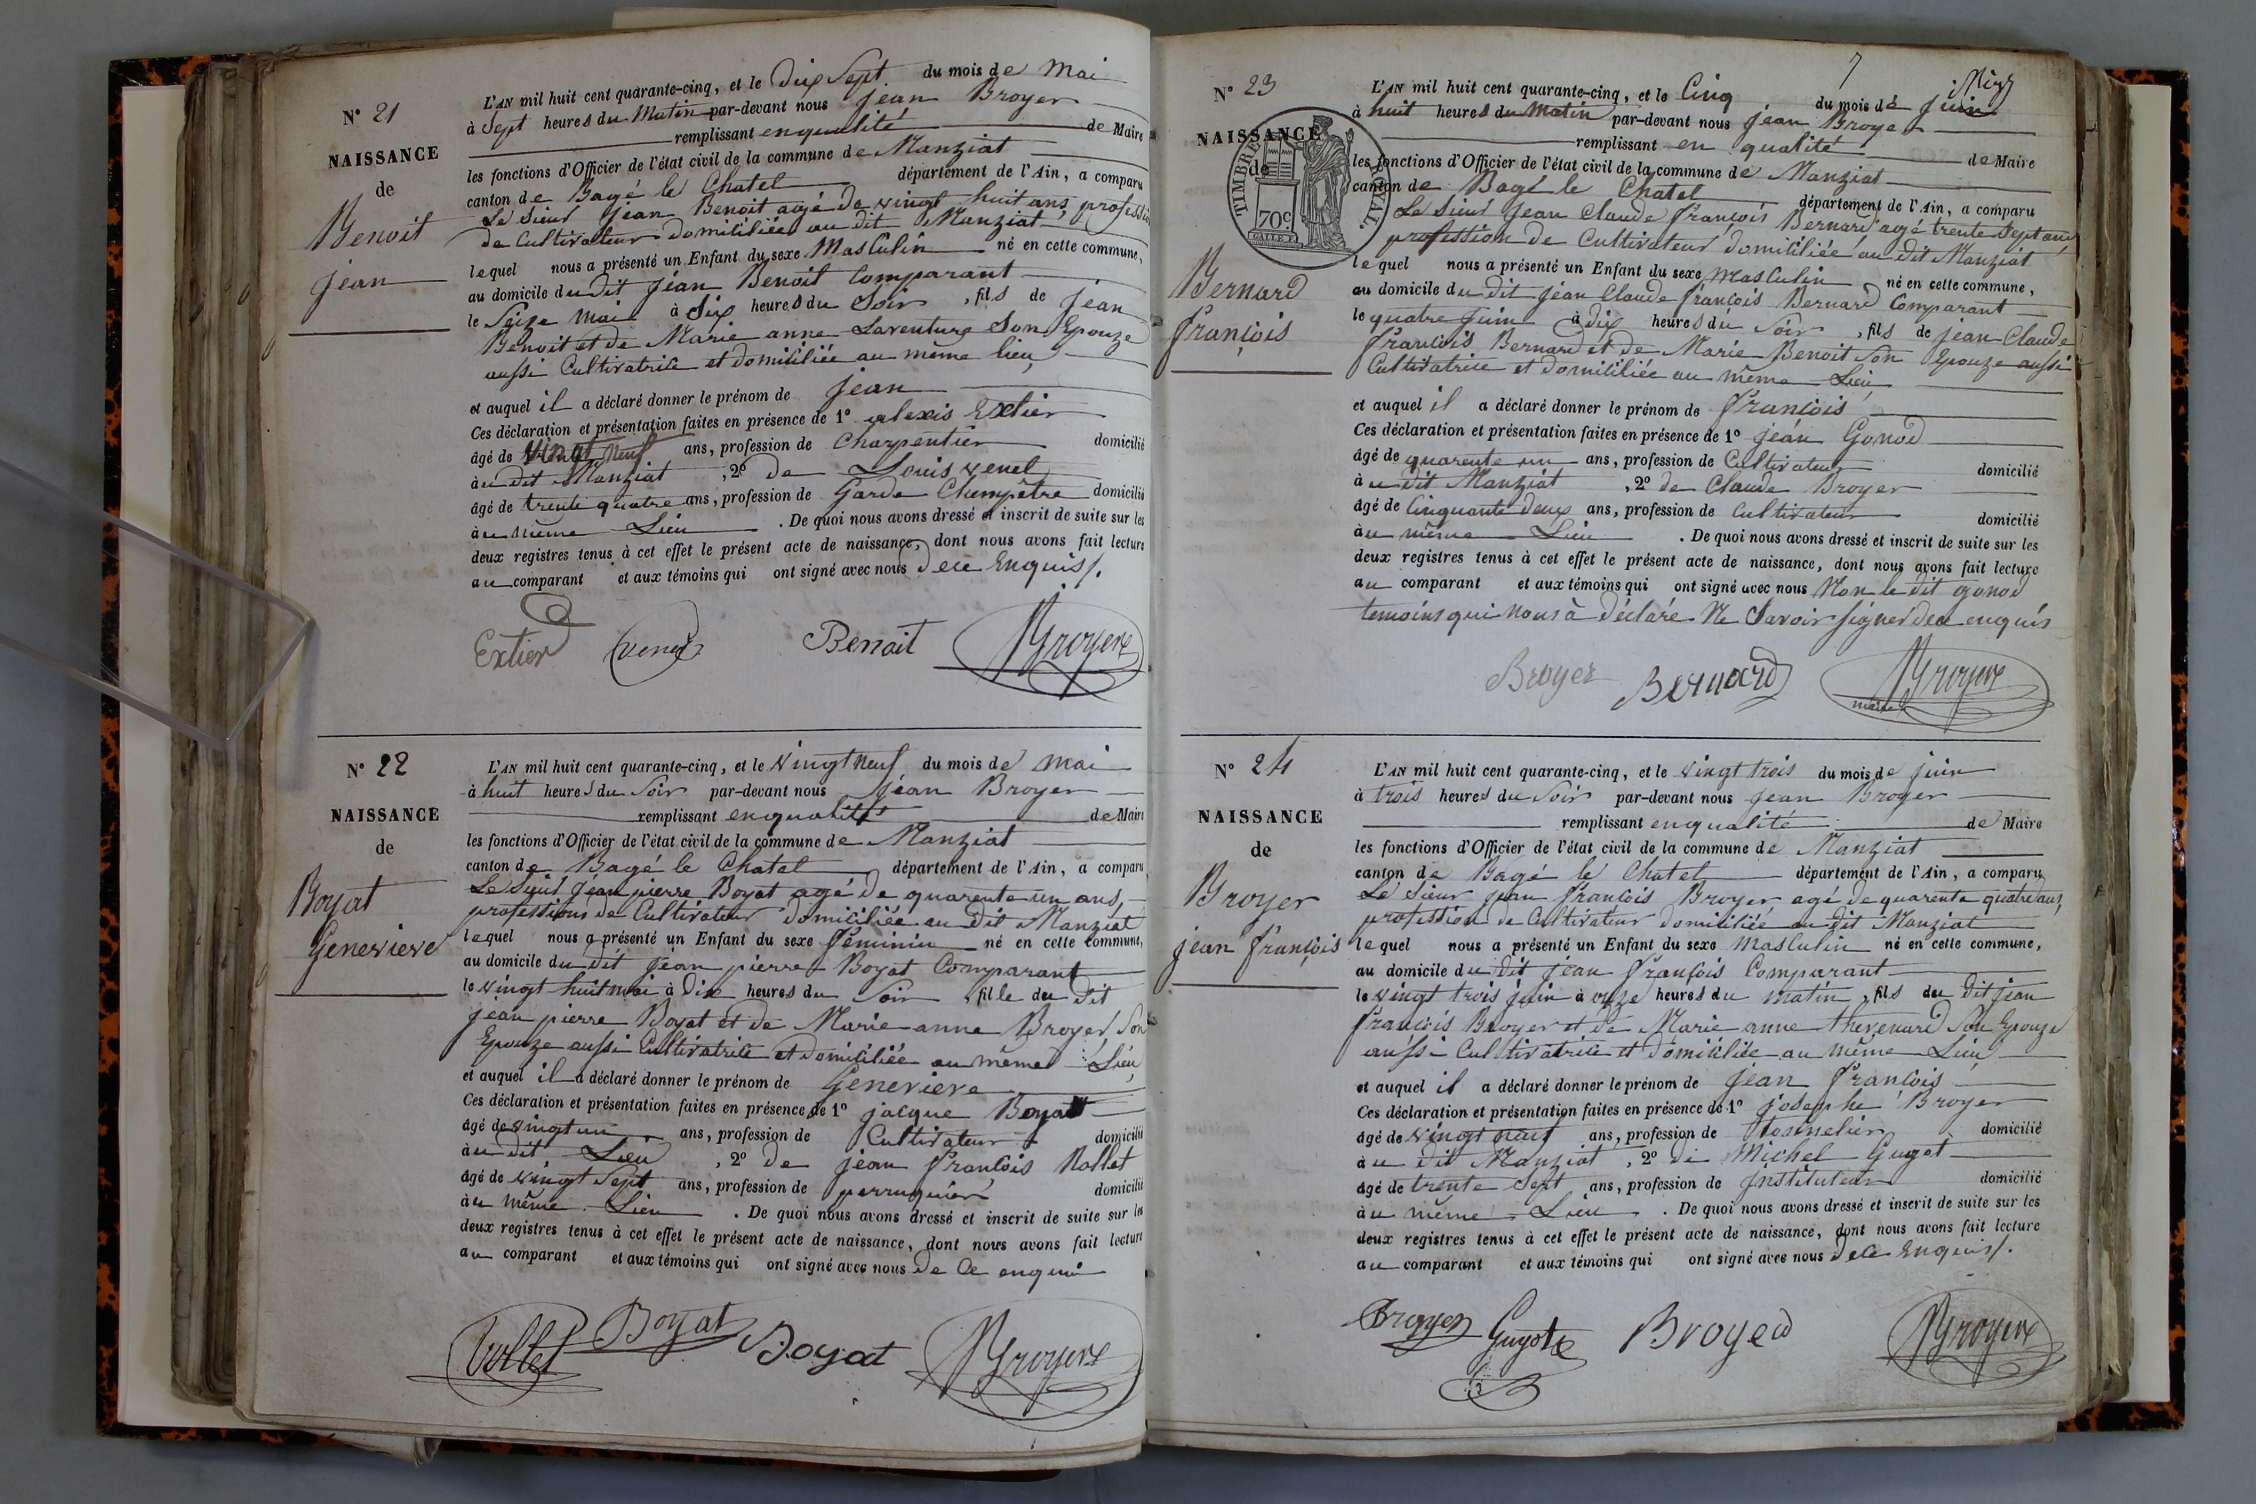 N° 21
NAISSANCE
de
Benoit
jean
L'AN mil huit cent quarante-cinq, et le dix Sept du mois de Mai
à Sept heures du Matin par-devant nous jean Broyer
remplissant en qualité de Maire
les fonctions d'Officier de l'état civil de la commune de Manziat
canton de Bagé le Chatel département de l'Ain, a comparu
Le Sieur Jean Benoit agé de vingt huit ans, profession
de Cultivateur domiciliée au dit Manziat
lequel nous a présenté un Enfant du sexe Masculin né en cette commune,
au domicile du dit jean Benoit Comparant
le Seize Mai à Six heures du Soir, fils de jean
Benoit et de Marie anne Laventure Son Epouze
aussi Cultivatrice et domiciliée au même lieu
et auquel il a déclaré donner le prénom de jean
Ces déclaration et présentation faites en présence de 1° alexis Extier
âgé de vingt neuf ans, profession de Charpentier domicilié
à au dit Manziat, 2° de Louis venel
âgé de trente quatre ans, profession de Garde Champêtre domicilié
à au même Lieu. De quoi nous avons dressé et inscrit de suite sur les
deux registres tenus à cet effet le présent acte de naissance, dont nous avons fait lecture
au comparant et aux témoins qui ont signé avec nous de ce Enquis/.
Extier venel Benoit Broyer
N° 22
NAISSANCE
de
Boyat
Genevieve
L'AN mil huit cent quarante-cinq, et le vingt neuf du mois de Mai
à huit heures du Soir par-devant nous jean Broyer
remplissant en qualité de Maire
les fonctions d'Officier de l'état civil de la commune de Manziat
canton de Bagé le Chatel département de l'Ain, a comparu
Le Sieur jean pierre Boyat agé de quarente un ans,
profession de Cultivateur domiciliée au dit Manziat
lequel nous a présenté un Enfant du sexe féminin né en cette commune,
au domicile du dit jean pierre Boyat Comparant
le vingt huit mai à dix heures du Soir, fille du dit
jean pierre Boyat et de Marie anne Broyer Son
Epouze aussi Cultivatrice et domiciliée au même Lieu
et auquel il a déclaré donner le prénom de Genevieve
Ces déclaration et présentation faites en présence de 1° jacque Boyat
âgé de vingt un ans, profession de Cultivateur domicilié
à au dit Lieu, 2° de jean francois Nollet
âgé de vingt Sept ans, profession de perruquier domicilié
à au même Lieu. De quoi nous avons dressé et inscrit de suite sur les
deux registres tenus à cet effet le présent acte de naissance, dont nous avons fait lecture
au comparant et aux témoins qui ont signé avec nous de ce enquis
Boyat Boyat Broyer
7
N° 23
NAISSANCE
de
TIMBRE ROYAL.
70c
Bernard
françois
L'AN mil huit cent quarante-cinq, et le Cinq du mois de juin
à huit heures du Matin par-devant nous jean Broyer
remplissant en qualité de Maire
les fonctions d'Officier de l'état civil de la commune de Manziat
canton de Bagé le Chatel département de l'Ain, a comparu
Le Sieur jean Claude françois Bernard agé trente Sept ans
profession de Cultivateur domiciliée au dit Manziat
lequel nous a présenté un Enfant du sexe masculin né en cette commune,
au domicile du dit jean Claude françois Bernard Comparant
le quatre juin à dix heures du Soir, fils de jean Claude
francois Bernard et de Marie Benoit Son Epouze aussi
Cultivatrice et domiciliée au même Lieu
et auquel il a déclaré donner le prénom de francois
Ces déclaration et présentation faites en présence de 1° jean Gonod
âgé de quarente un ans, profession de Cultivateur domicilié
à au dit Manziat, 2° de Claude Broyer
âgé de Cinquante deux ans, profession de Cultivateur domicilié
à au même Lieu. De quoi nous avons dressé et inscrit de suite sur les
deux registres tenus à cet effet le présent acte de naissance, dont nous avons fait lecture
au comparant et aux témoins qui ont signé avec nous Non le dit gonod
temoins qui nous à déclaré Ne Savoir signer de ce enquis
Broyer Bernard Broyer
maire
N° 24
NAISSANCE
de
Broyer
jean françois
L'AN mil huit cent quarante-cinq, et le vingt trois du mois de juin
à trois heures du Soir par-devant nous jean Broyer
remplissant en qualité de Maire
les fonctions d'Officier de l'état civil de la commune de Manziat
canton de Bagé le Chatel département de l'Ain, a comparu
Le Sieur jean francois Broyer agé de quarente quatre ans,
profession de Cultivateur domiciliée au dit Manziat
lequel nous a présenté un Enfant du sexe Masculin né en cette commune,
au domicile du dit jean françois Comparant
le vingt trois juin à onze heures du matin, fils du dit jean
francois Broyer et de Marie anne thevenard Son Epouze
aussi Cultivatrice et domiciliée au même Lieu
et auquel il a déclaré donner le prénom de jean francois
Ces déclaration et présentation faites en présence de 1° josephe Broyer
âgé de vingt neuf ans, profession de tonnelier domicilié
à au dit Manziat, 2° de Michel Guyot
âgé de trente Sept ans, profession de Instituteur domicilié
à au même Lieu. De quoi nous avons dressé et inscrit de suite sur les
deux registres tenus à cet effet le présent acte de naissance, dont nous avons fait lecture
au comparant et aux témoins qui ont signé avec nous de ce Enquis/.
Broyer Guyot Broyer Broyer